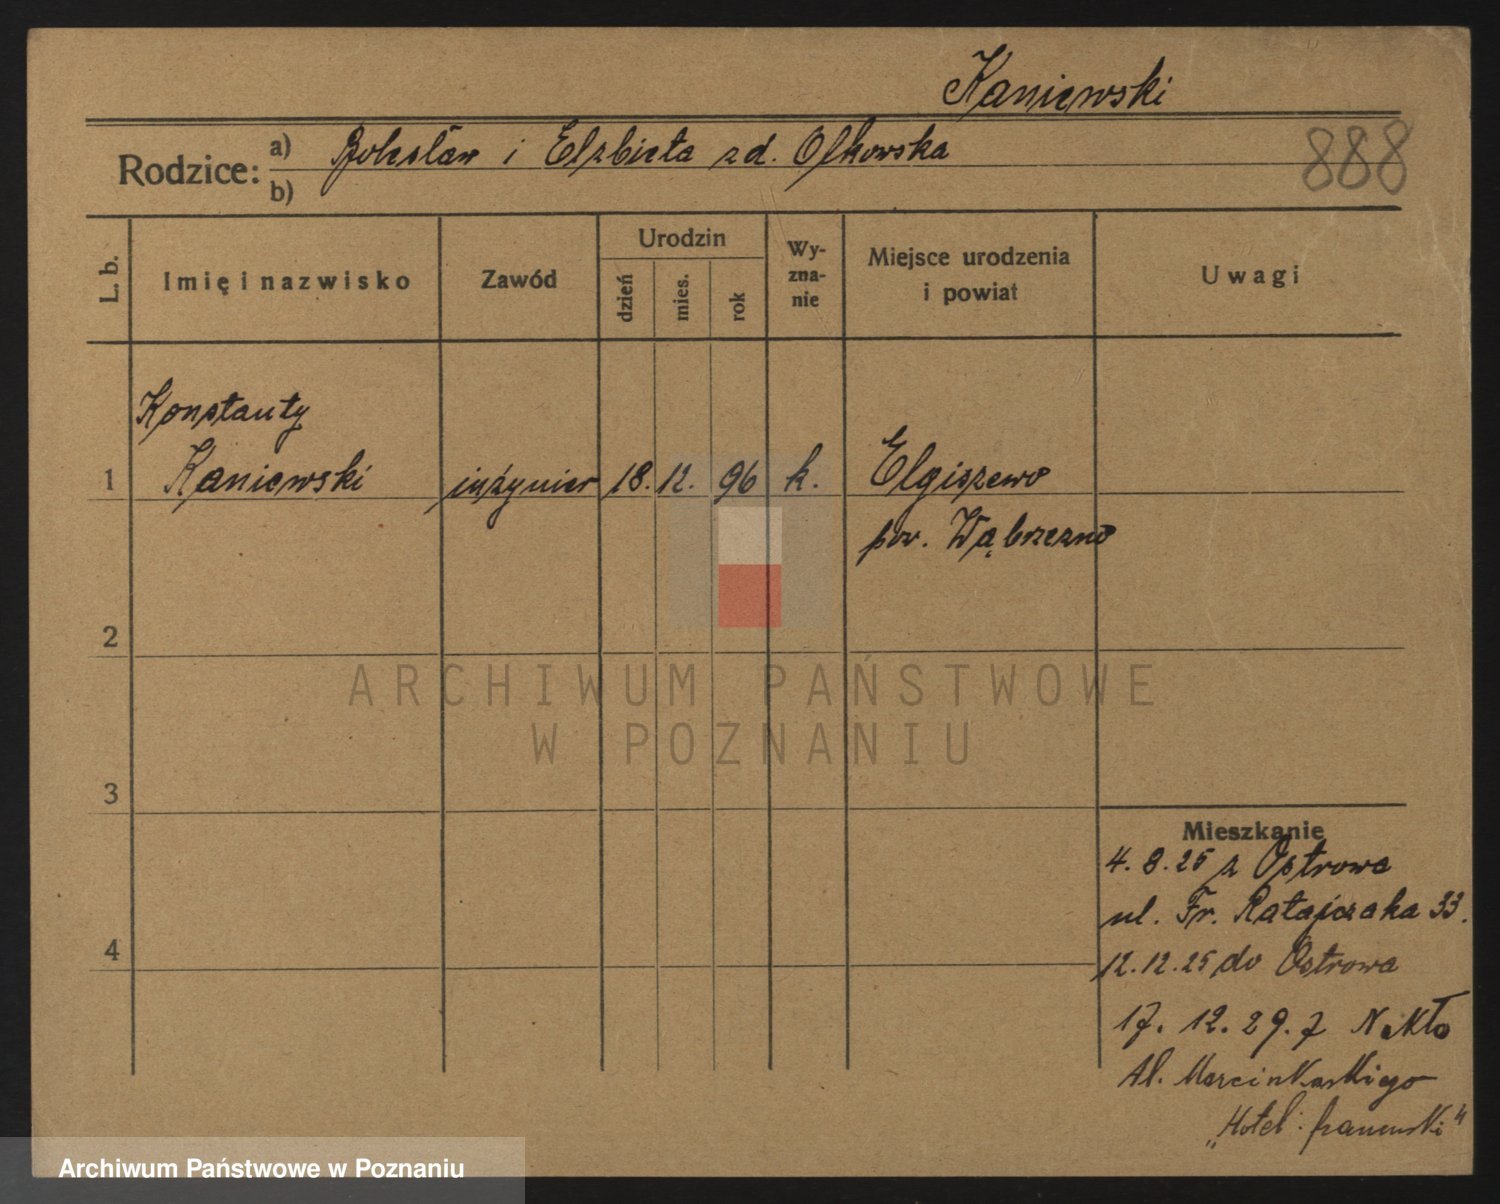 Kaniewski
Rodzice: a) Bolesław i Elzbieta zd. Olkowska
b)
888
L. b.
Imię i nazwisko
Zawód
Urodzin
dzień
mies.
rok
Wy-
zna-
nie
Miejsce urodzenia
i powiat
Uwagi
Konstanty
1 Kaniewski inżynier 18. 12. 96 k. Elgiszewo
pow. Wąbrzezno
2
ARCHIWUM PAŃSTWOWE
W POZNANIU
3
Mieszkanie
4. 8. 25 z Ostrowa
ul. Fr. Ratajczaka 33.
4
12. 12. 25 do Ostrowa
17. 12. 29. z Nakło
Al. Marcinkowskiego
„Hotel
Archiwum Państwowe w Poznaniu